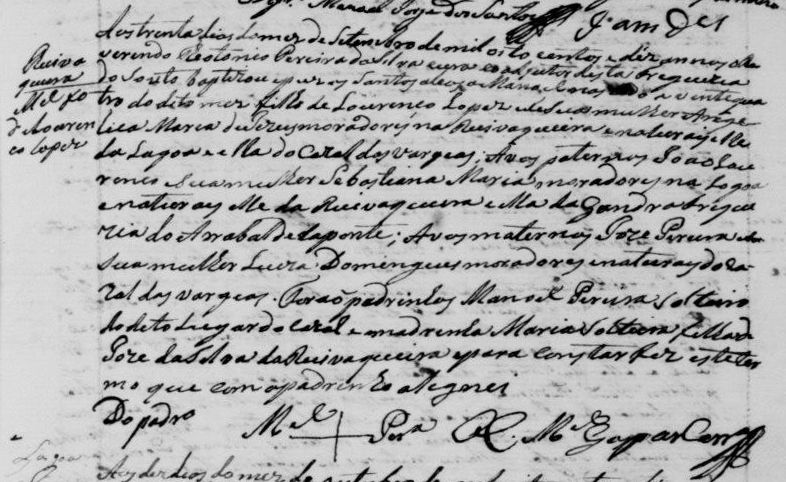 Manoel Joze dos Santos
Reiva
queira
Mel fo
de Louren
co Lopez
Aos trinta dias do mez de Setembro de mil oito centos e déz annos o Re
verendo Teotonio Pereira da Silva cura coadjutor desta Freguezia
do Souto baptizou e pos os Santos oleos a Manoel nascido a vinte qua
tro do dito mez filho de Lourenco Lopez e de sua mulher Ange
lica Maria de Jezus moradores na Reivaqueira e naturais elle
da Lagoa e ella do Casal dos Vargeas; Avos paternos João Lou
renco e sua mulher Sebastiana Maria moradores na Lagoa
e naturais elle da Reivaqueira e ella da Gandra Fregue
zia do Arrabal de Laponte; Avos maternos Joze Pereira e
sua mulher Luiza Domingues moradores e naturais do Ca
zal dos Vargeas. Forão padrinhos Manoel Pereira solteiro
do dito Lugar do Cazal e madrinha Maria solteira filha de
Joze da Silva da Reivaqueira e para constar fiz este ter
mo que com o padrinho asignei
Do padro Mel Pera O C. Mel Gaspar Corra
Lagoa
Aos des dias do mez de outubro de